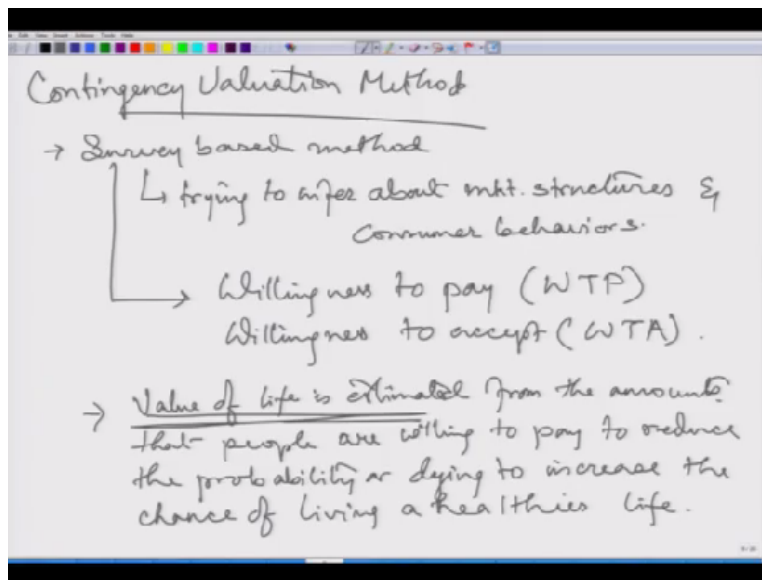 Contingency Valuation Method
→ Survey based method
↳ trying to infer about mkt. structures &
consumer behaviors.
→ Willingness to pay (WTP)
Willingness to accept (WTA).
→ Value of life is estimated from the amounts
that people are willing to pay to reduce
the probability or dying to increase the
chance of living a healthier life.